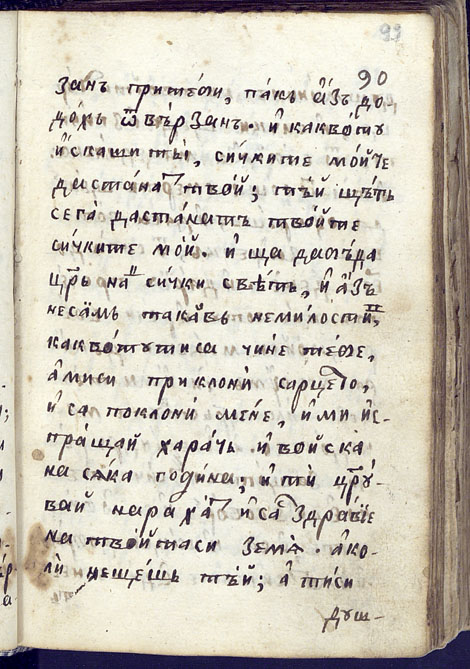 99
90
занъ притежи, пакъ азъ до
дохъ ѿвѣрзанъ. и каквотъ
искаши ты, сичките мойте
дастанатъ твой; тѣй щѣть
сега дастанатъ твойте
сичките мой. и ща дамъ да
црь на сички свѣть, и азъ
несамъ такавъ немилостиⷡ,
каквотутиса чине тебе,
амиси приклони сарцето,
и са поклони мене, и ми ис-
пращай харачь и войска
на сяка година; и ти црꙋ-
вай нарахаⷮ и саⷭ здравїе
на твойтаси земѧ. ако-
ли нещешь тѣй; а тиси
душ-